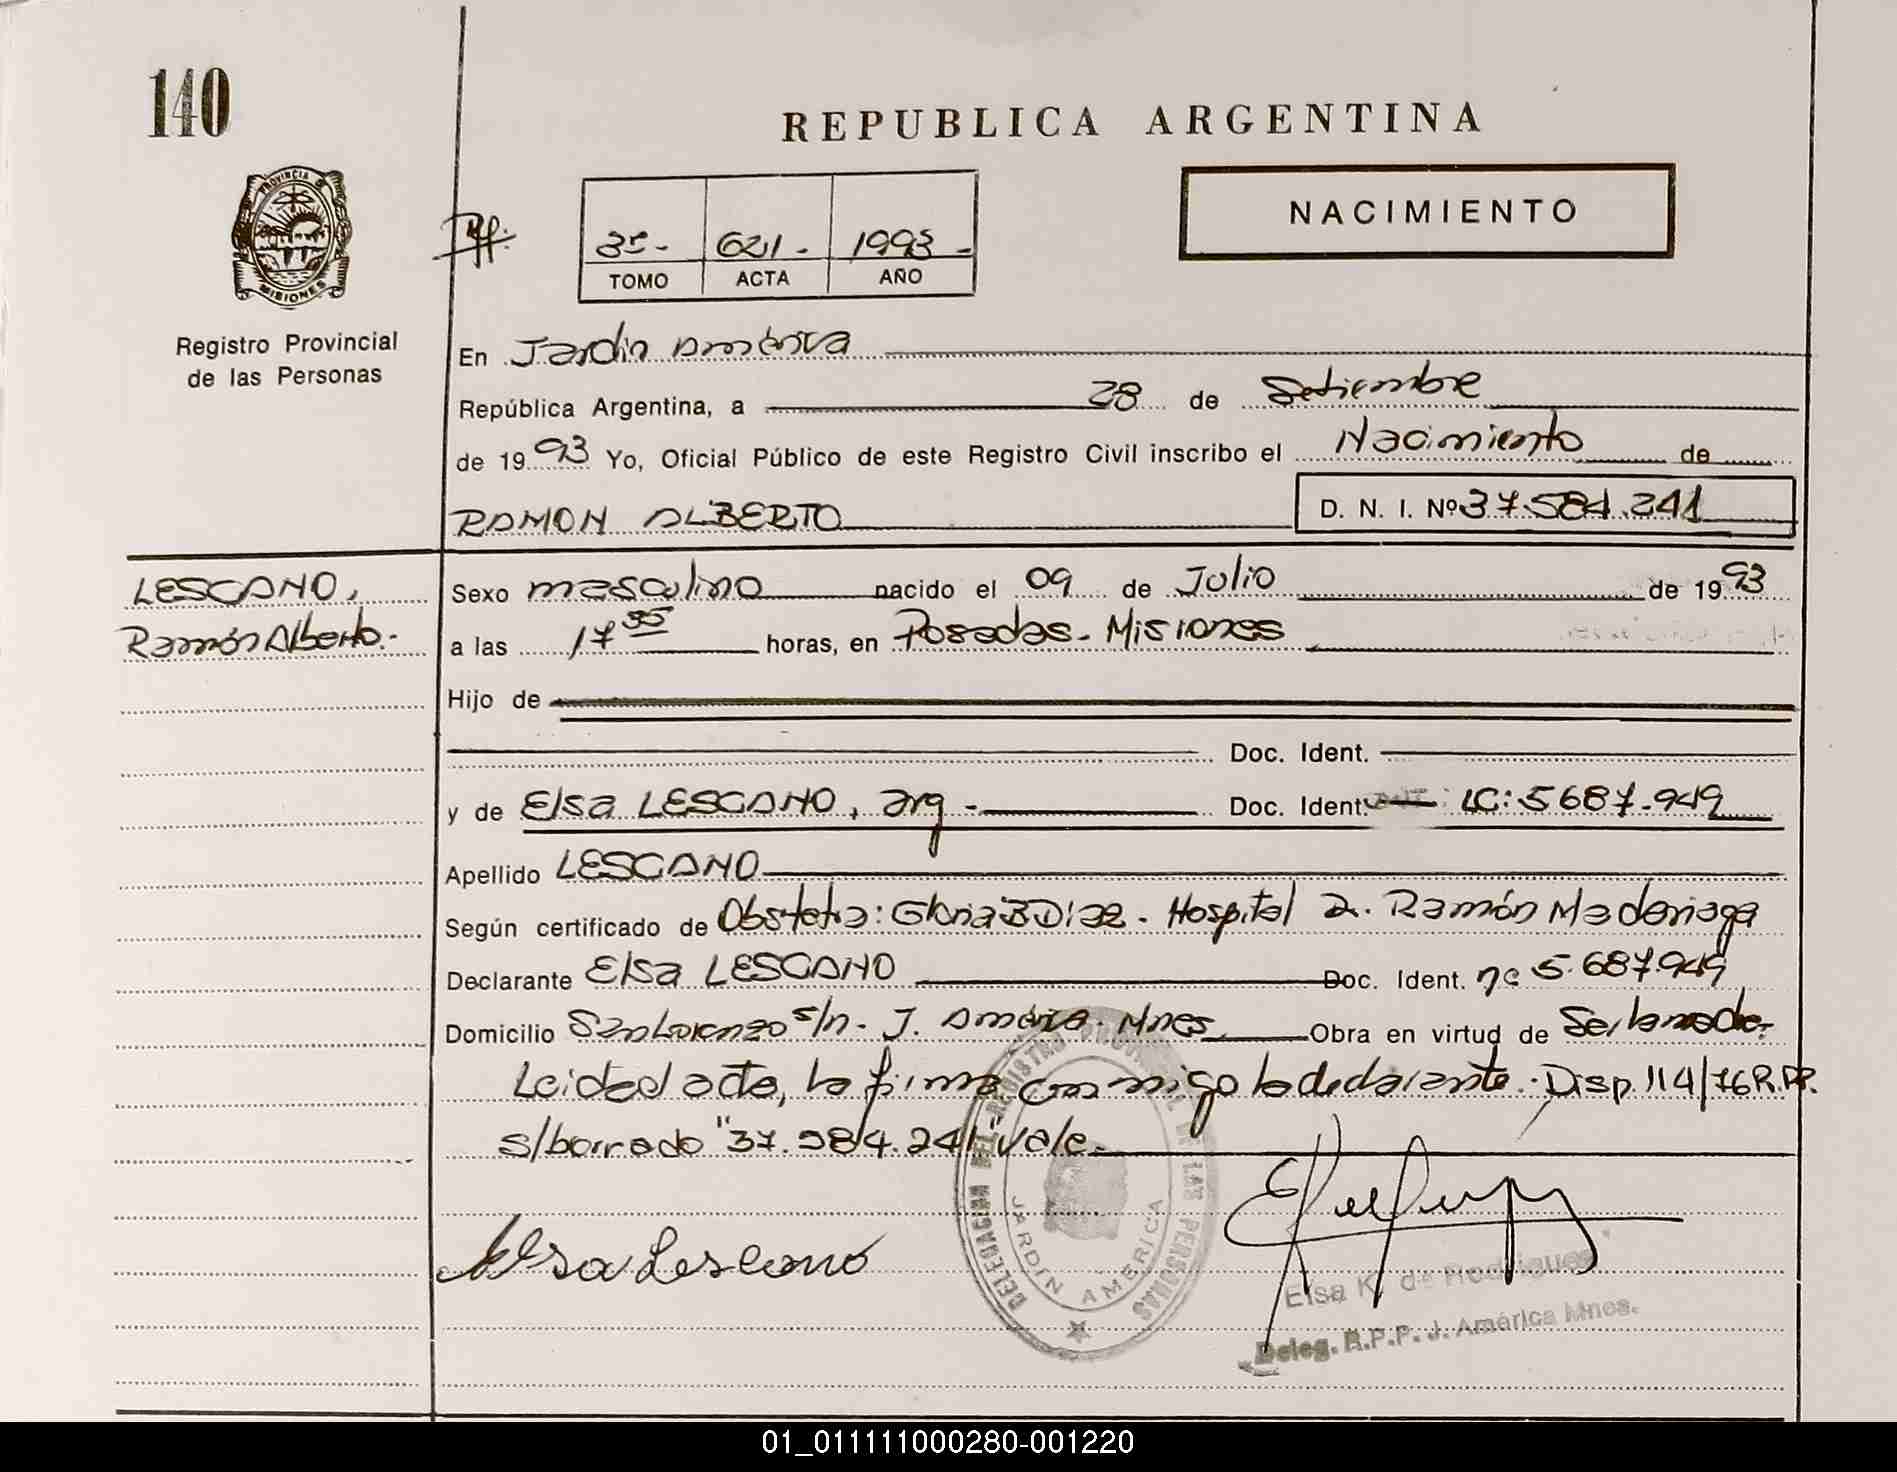 140
REPUBLICA ARGENTINA
PROVINCIA DE
MISIONES
NACIMIENTO
621 - 1993 -
TOMO ACTA AÑO
Registro Provincial
de las Personas
En Jardín América
República Argentina, a 28 de Setiembre
de 1993 Yo, Oficial Público de este Registro Civil inscribo el Nacimiento de
RAMON ALBERTO D. N. I. Nº 37.584.241
LESCANO,
Ramón Alberto.-
Sexo masculino nacido el 09 de Julio de 1993
a las 17 35 horas, en Posadas - Misiones
Hijo de
Doc. Ident.
y de Elsa LESCANO, arg - Doc. Ident. LC: 5687.949
Apellido LESCANO
Según certificado de Obstetra: Gloria B Díaz - Hospital Dr. Ramón Madariaga
Declarante Elsa LESCANO Doc. Ident. nc 5.687.949
Domicilio San Lorenzo s/n - J. América - Mnes Obra en virtud de
Leida el acta, la firma conmigo la declarante.- Disp. 114/76 R.PP.
s/borrado "37.584.241" vale.-
Elsa Lescano
DELEGACION DEL REGISTRO PROVINCIAL DE LAS PERSONAS
JARDIN AMERICA
Elsa K. de Rodriguez
Deleg. R.P.P. J. América Mnes.
01_011111000280-001220